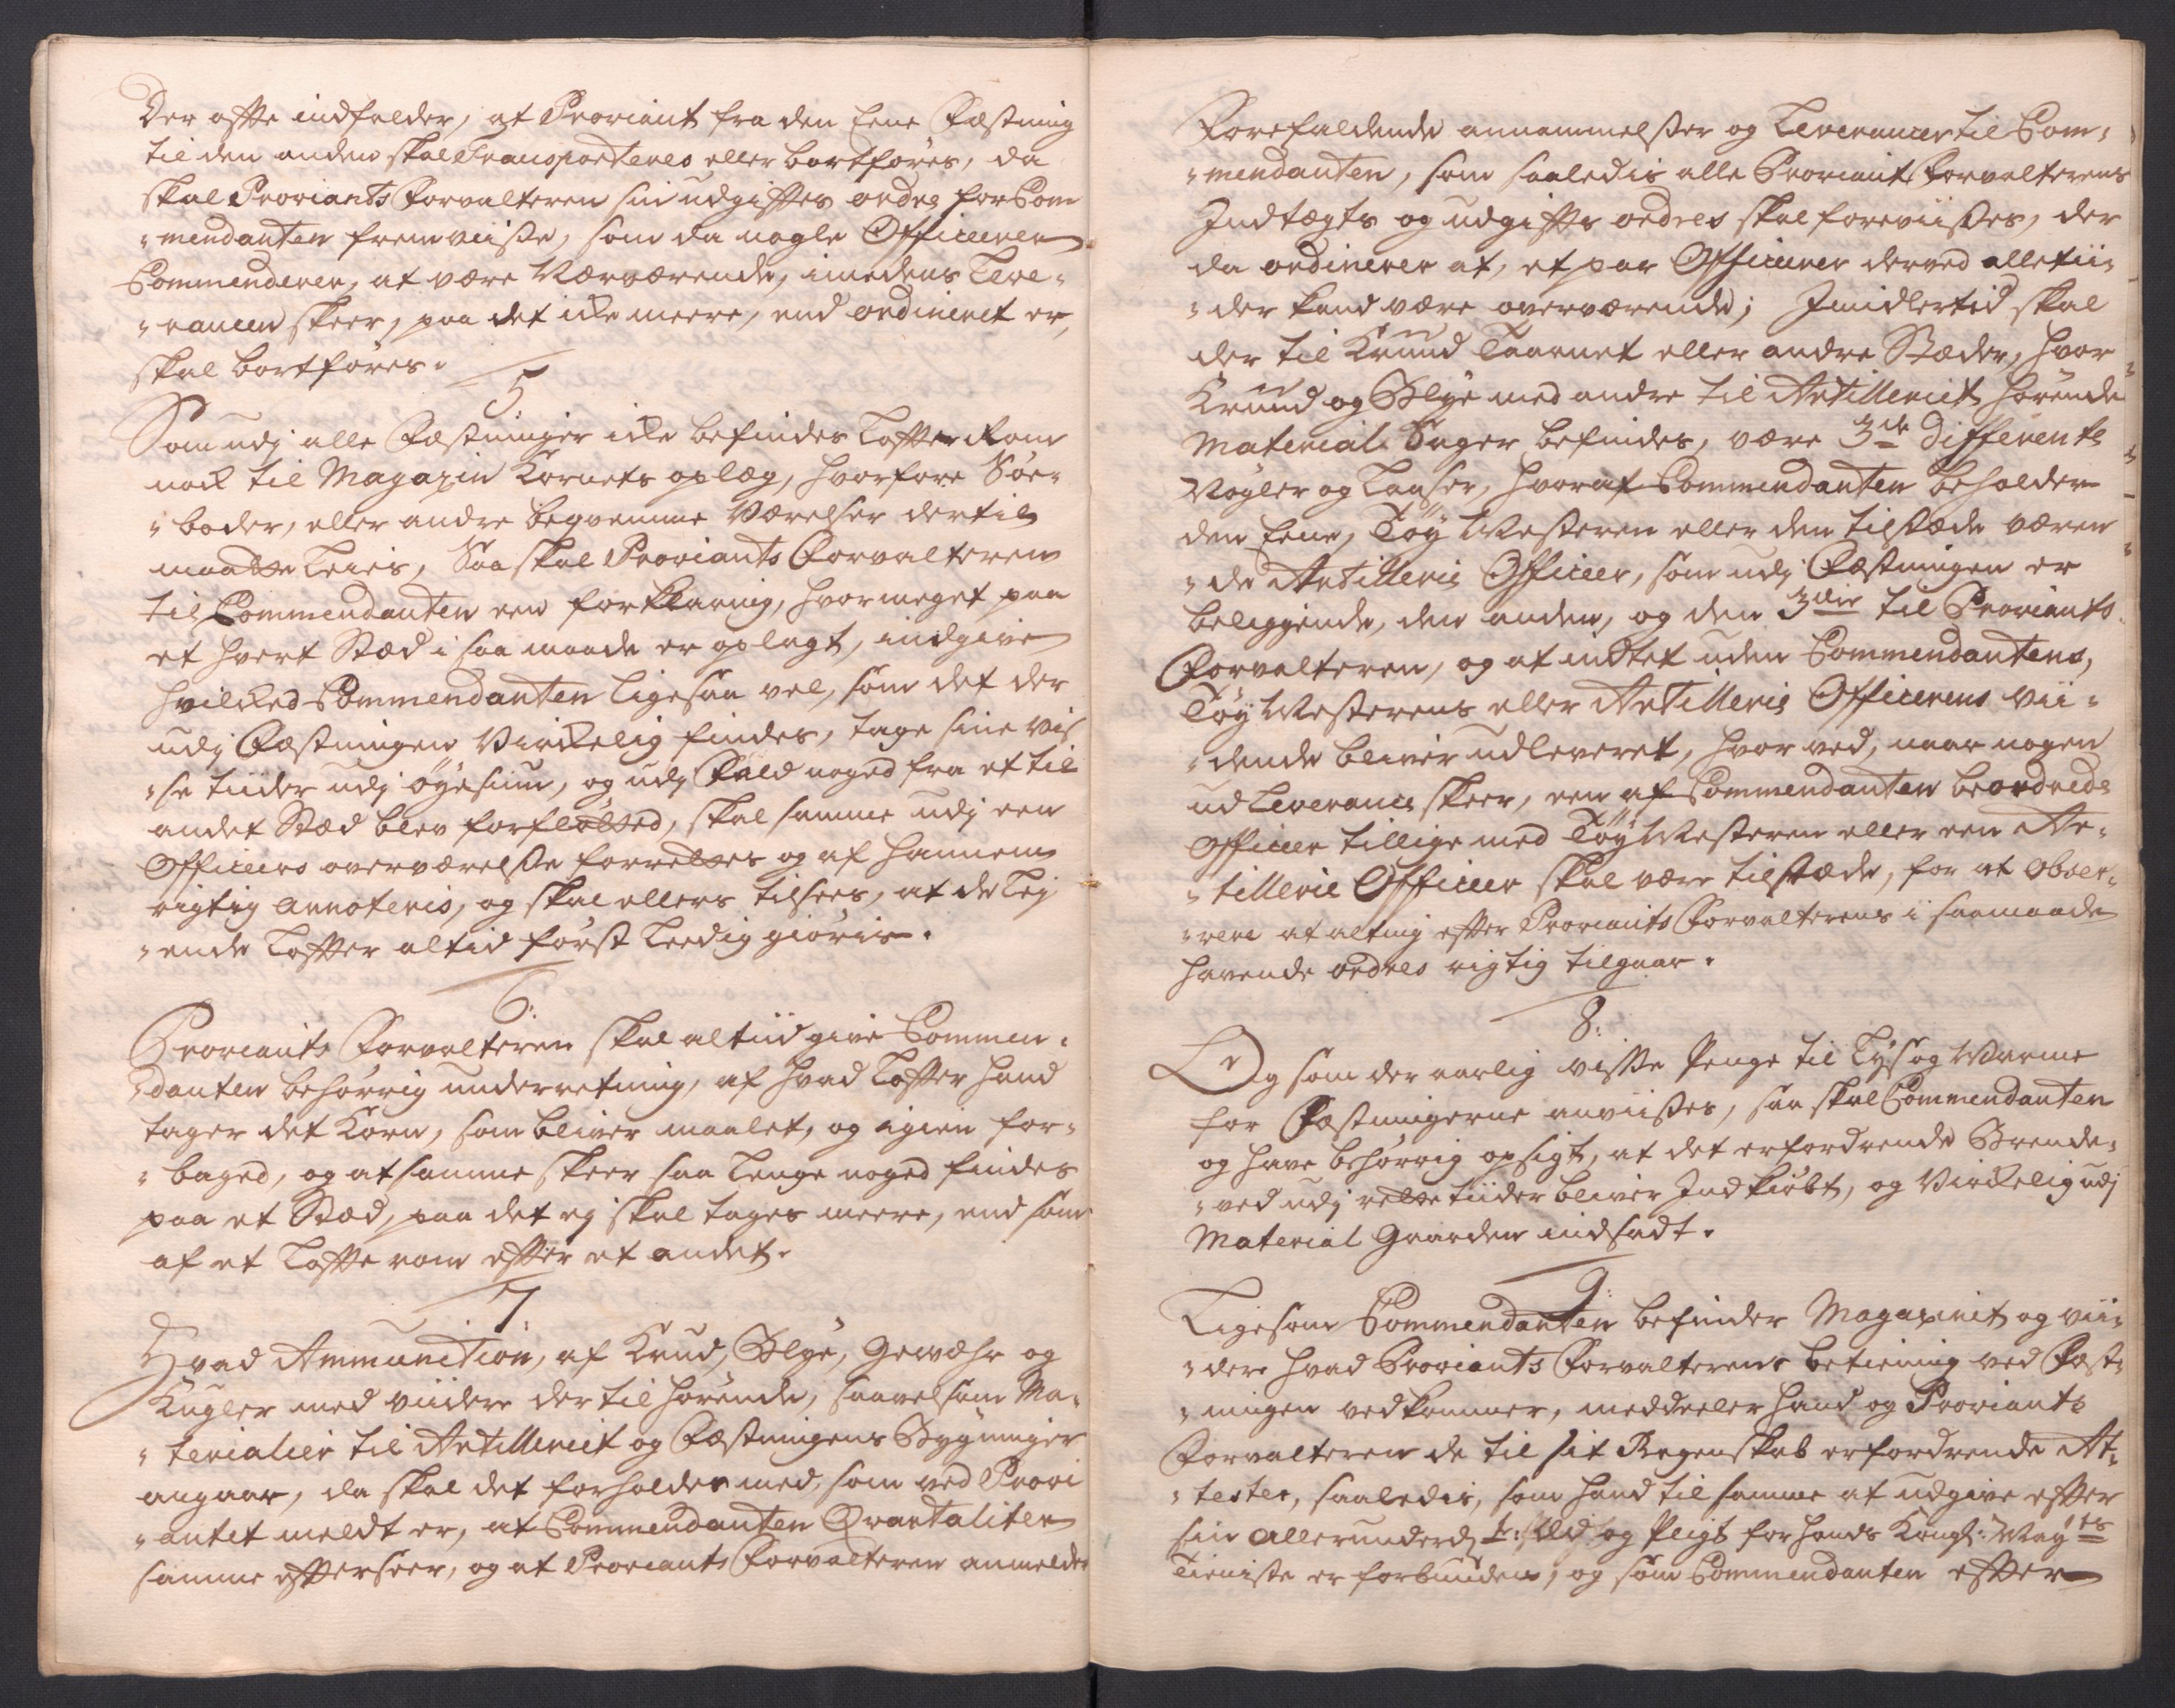 Der offte indfalder, at Proviant fra den Eene Fæstning
til den anden skal Transporteres eller bortføres, da
skal Proviants Forvalteren sin udgiffts ordre for Com
-mendanten fremviiße, som da nogle Officerer
Commenderer, at være Nærværende, imedens Leve-
-rancen skeer, paa det icke meere, end ordineret er,
skal bortføres.
5
Som udj alle Fæstninger icke befindes Loffter Rom
nock til Magazin Kornets oplæg, hvorfore Søe-
-boder, eller andre beqvemme Værelser dertil
maatte Leies, Saa skal Proviants Forvalteren
til Commendanten een forklaring, hvormeget paa
et hvert Stæd i saa maade er oplagt, indgive
hvilcked Commendanten ligesaa vel, som det der
udj Fæstningen Virckelig findes, tage sine vis
-se tiider udj øyesiun, og udj Fald noged fra et til
andet Stæd blev forflötted, skal samme udj een
Officeers overværelße forrettes og af hannem
rigtig annoteris, og skal ellers tilsees, at de Lej
-ende Loffter altid først Leedig giøris.
6:
Proviants Forvalteren skal altiid give Commen-
-danten behørrig underretning, af hvad Loffter hand
tager det Korn, som bliver maalet, og igien for-
-baged, og at samme skeer saa Lenge noged findes
paa et Stæd, paa det ej skal tages meere, end som
af et Loffte rom effter et andet.
7:
Hvad Ammunition, af Krud, Blye, Gewæhr og
Kugler med viidere der til hørende, saavelsom Ma-
-terialier til Artilleriet og Fæstningens Bygninger
angaar, da skal det forholdes med, som ved Provi
-antet meldt er, at Commendanten Qvartaliter
samme effterseer, og at Proviants Forvalteren anmelder
Forefaldende annammelßer og Leverancer til Com-
-mendanten, som saaledis alle Proviant Forvalterens
Indtægts og udgiffts ordres skal foreviißes, der
da ordinerer at, et par Officerer derved alletii-
-der kand være overværende; Imidlertid skal
der til Kruud Taarnet eller andre Stæder, hvor
Kruud og Blye med andre til Artilleriet hørende
Material Sager befindes, være 3de differente
Nøgler og Laaser, hvoraf Commendanten beholder
den Eene, Töy Mesteren eller den tilstæde væren
-de Artillerie Officeer, som udj Fæstningen er
beliggende, den anden, og den 3die til Proviants
Forvalteren, og at intet uden Commendantens,
Töy Mesterens eller Artillerie Officerens vii-
-dende bliver udleveret, hvor ved, naar nogen
ud Leverance skeer, een af Commendanten beordrede
officeer tillige med Töy Mesteren eller een Ar-
-tillerie Officeer skal være tilstæde, for at obser-
-vere at alting effter Proviants Forvalterens i saamaade
havende ordres rigtig tilgaar.
8:
Og som der aarlig visse Penge til Lys og Varme
for Fæstningerne anviißes, saa skal Commendanten
og have behørrig opsigt, at det erfordrende Brende-
-ved udj rette tiider bliver Indkiøbt, og Virckelig udj
Material Gaarden indsadt.
9:
Ligesom Commendanten befinder Magazinet og vii-
-dere hvad Proviants Forvalterens betiening ved Fæst-
-ningen vedkommer, meddeeler hand og Proviants
Forvalteren de til sit Regenskab erfordrende At-
-tester, saaledis, som hand til samme at udgive effter
sin allerunderd: Eed og Pligt for hands Kongl: May:ts
Tieniste er forbunden, og som Commendanten effter